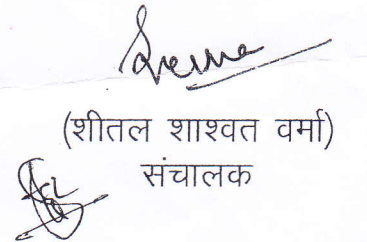 (शीतल शाश्वत वर्मा)
संचालक